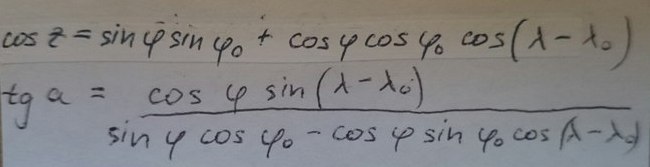 cos z = sin φ sin φ₀ + cos φ cos φ₀ cos(λ - λ₀)
tg a = cos φ sin(λ - λ₀)
sin φ cos φ₀ - cos φ sin φ₀ cos(λ - λ₀)